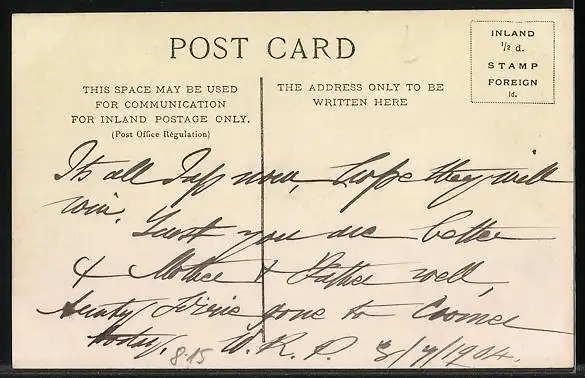 POST CARD
THIS SPACE MAY BE USED
FOR COMMUNICATION
FOR INLAND POSTAGE ONLY.
(Post Office Régulation)
THE ADDRESS ONLY TO BE
WRITTEN HERE
INLAND
½ d.
STAMP
FOREIGN
1d.
It's all Jap now, hope they will
win. Trust you are better
& Mother & Father well,
Aunty gone to
today. W. R. P. 3/4/1904.
8.15